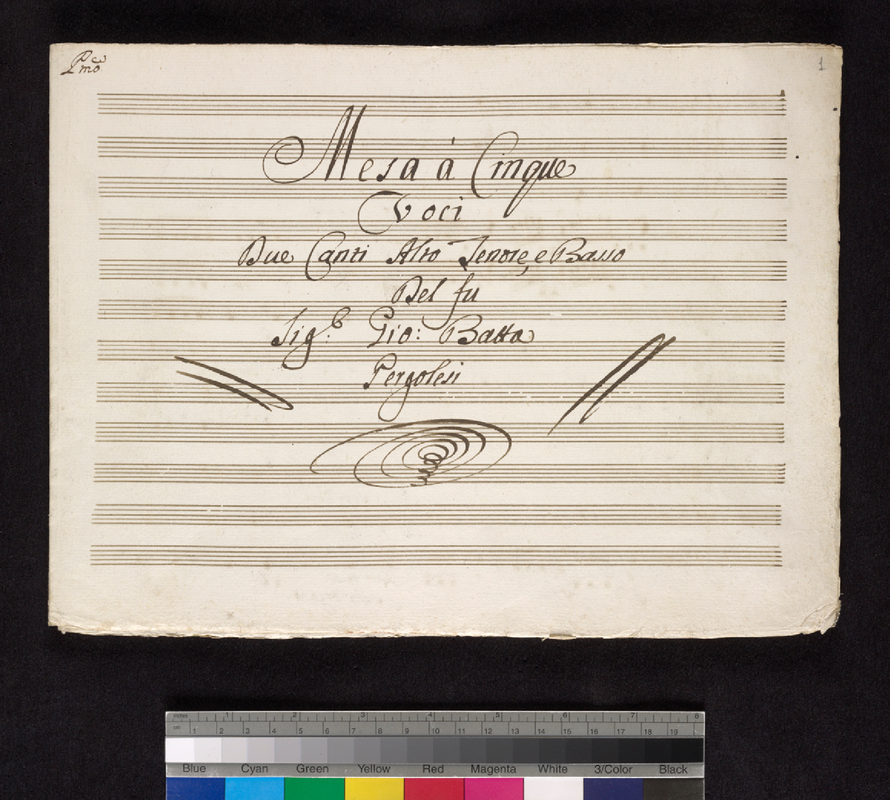 Pmo
1
Mesa à Cinque
Voci
Due Canti Alto Tenore, e Basso
Del fu
Sig.r Gio: Batta
Pergolesi
inches 1 2 3 4 5 6 7 8
cm 1 2 3 4 5 6 7 8 9 10 11 12 13 14 15 16 17 18 19
Blue Cyan Green Yellow Red Magenta White 3/Color Black